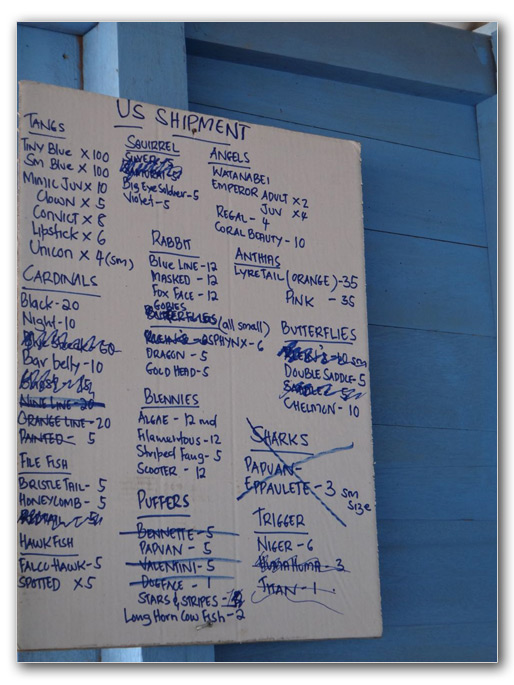 US SHIPMENT
TANGS
Tiny Blue x 100
Sm Blue x 100
Mimic Jun x 10
Clown x 5
Convict x 8
Lipstick x 6
Unicon x 4 (sm)
CARDINALS
Black - 20
Night - 10
Bar belly - 10
Nine Line - 20
ORANGE LINE - 20
PAINTED - 5
FILE FISH
BRISTLE TAIL - 5
HONEYCOMB - 5
HAWKFISH
FALCO HAWK - 5
SPOTTED x 5
SQUIRREL
Big Eye Soldier - 5
Violet - 5
RABBIT
Blue Line - 12
MASKED - 12
Fox Face - 12
GOBIES
BUTTERFLIES (all small)
SPHYNX - 6
DRAGON - 5
GOLD HEAD - 5
BLENNIES
ALGAE - 12 md
Filamentous - 12
Striped Fang - 5
SCOOTER - 12
PUFFERS
BENNETTE - 5
PAPUAN - 5
VALENTINI - 5
DOGFACE - 1
STARS & STRIPES -
Long Horn Cow Fish - 2
ANGELS
WATANABEI
EMPEROR ADULT x 2
JUN x 4
REGAL - 4
CORAL BEAUTY - 10
ANTHIAS
LYRETAIL (ORANGE) - 35
PINK - 35
BUTTERFLIES
DOUBLE SADDLE - 5
CHELMON - 10
SHARKS
PAPUAN -
EPPAULETE - 3 sm
size
TRIGGER
NIGER - 6
HUMA HUMA - 3
TITAN - 1